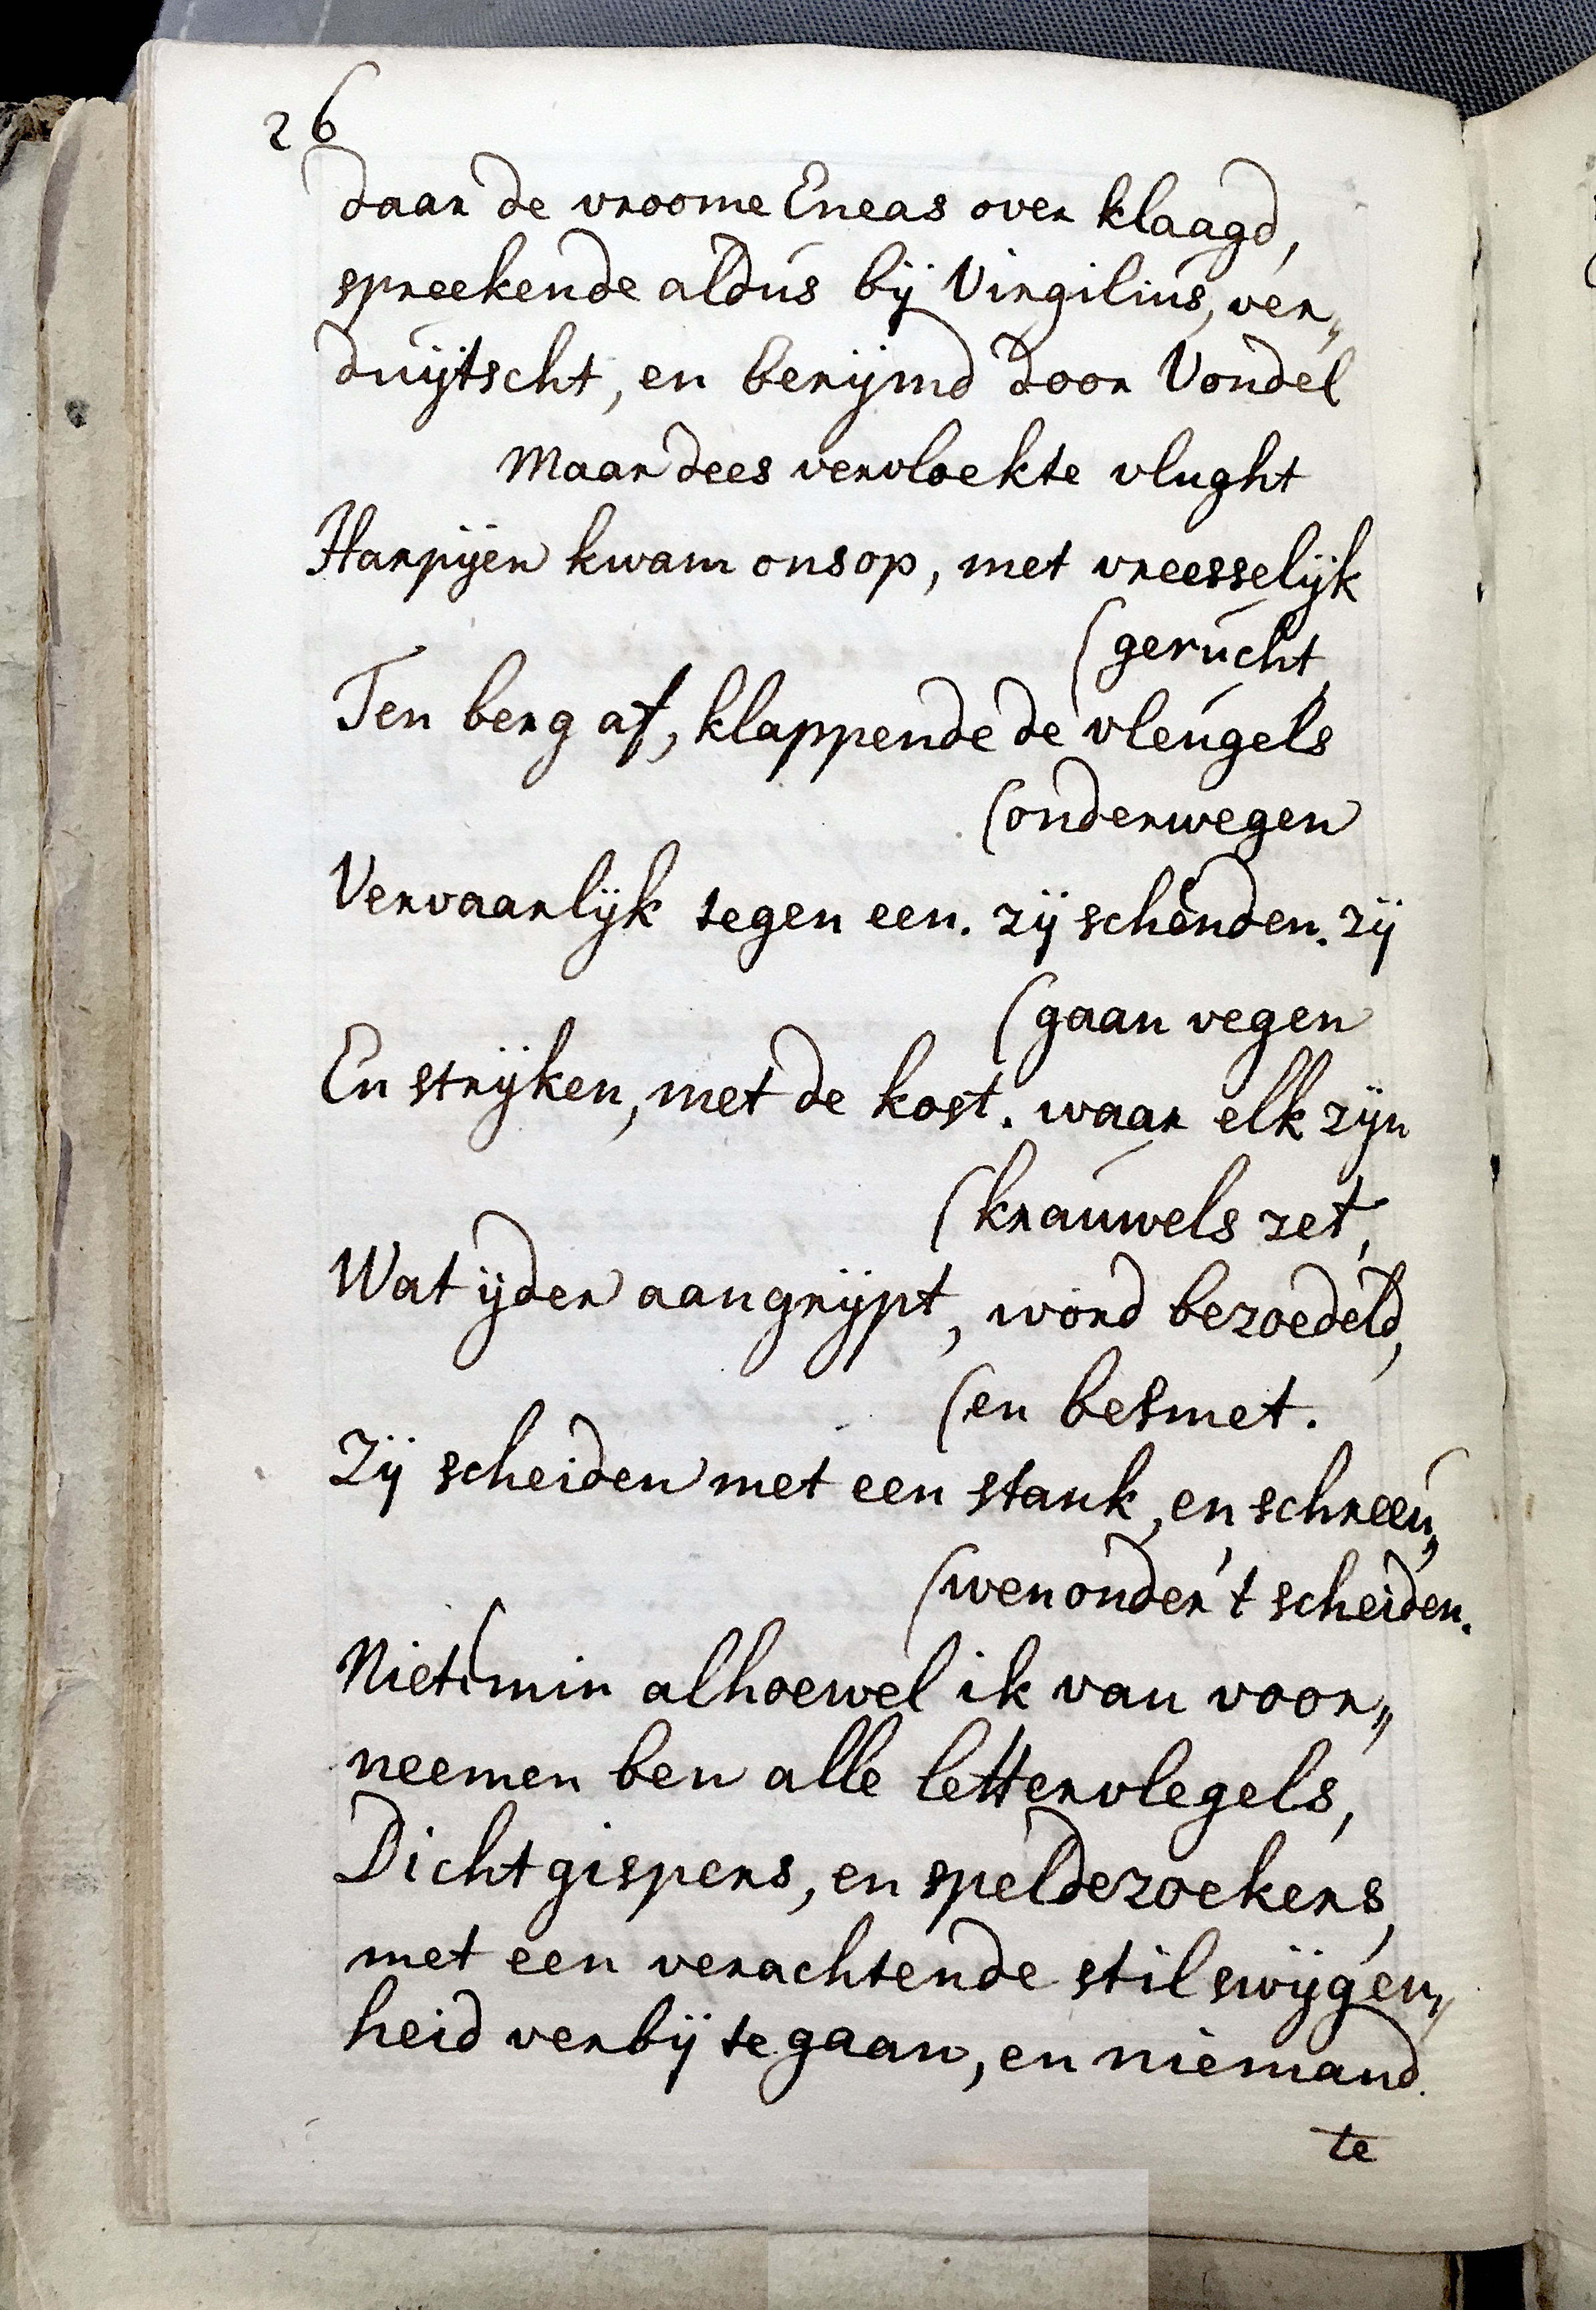 26
daar de vroome Eneas over klaagd,
spreekende aldus bij Virgilius, ver„
duijtscht, en berijmd door Vondel
Maar dees vervloekte vlught
Harpijen kwam ons op, met vreesselijk
(gerucht,
Ten berg af, klappende de vleugels
(onderwegen
Vervaarlijk tegen een. zij schenden. zij
(gaan vegen
En strijken, met de kost. waar elk zijn
(krauwels zet,
Wat ijder aangrijpt, word bezoedeld,
(en besmet.
Zij scheiden met een stank, en schreeu„
(wen onder 't scheiden.
Niet min alhoewel ik van voor„
neemen ben alle lettervlegels,
Dichtgispers, en speldezoekers,
met een verachtende stilswijgen„
heid verbij te gaan, en niemand
te